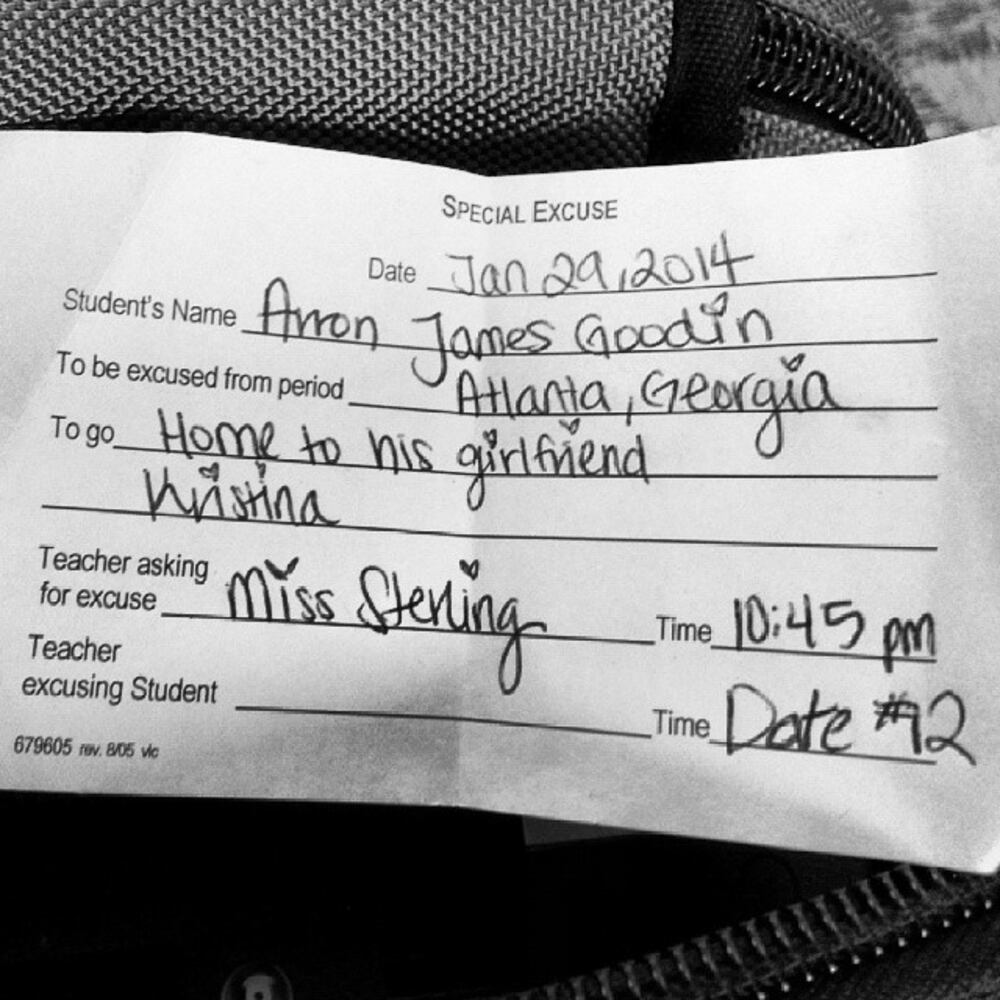 SPECIAL EXCUSE
Date Jan 29, 2014
Student's Name Arron James Goodin
To be excused from period Atlanta, Georgia
To go Home to his girlfriend
Kristina
Teacher asking
for excuse Miss Sterling Time 10:45 pm
Teacher
excusing Student Time Date #92
679605 rev. 8/05 vlc